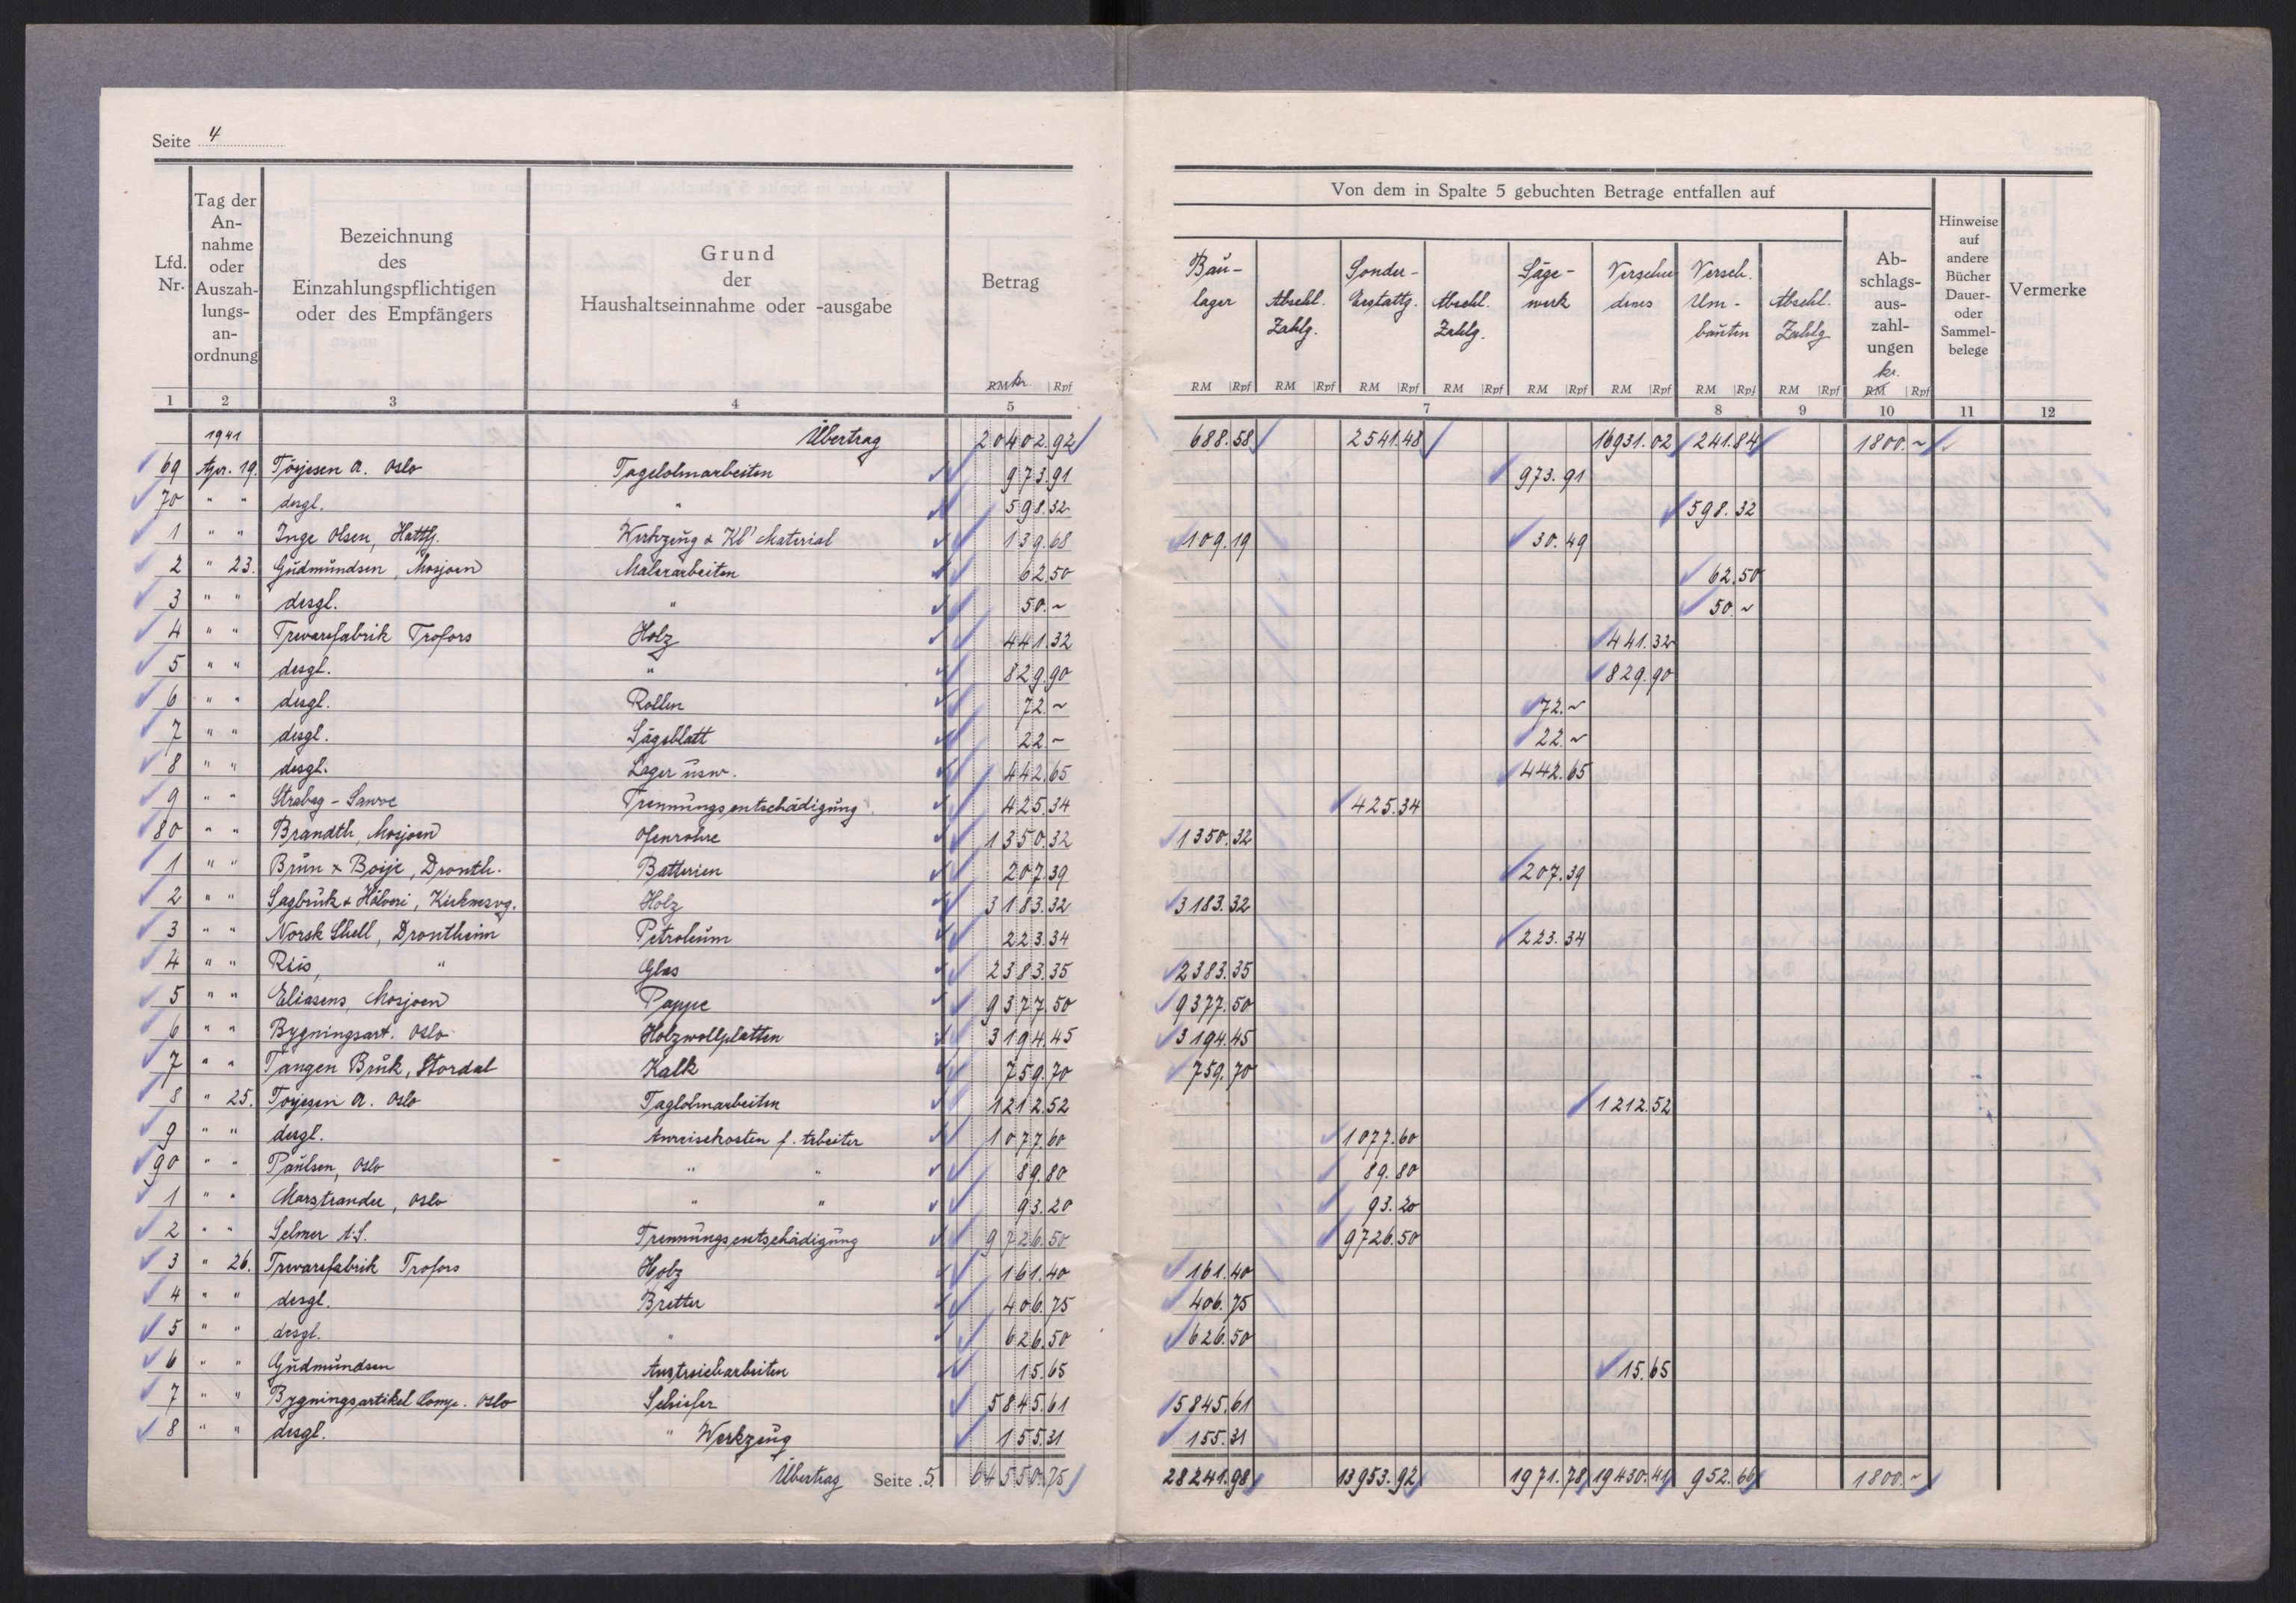 Seite 4
Lfd. Nr.
Tag der An- nahme oder Auszah- lungs- an- ordnung
Bezeichnung des Einzahlungspflichtigen oder des Empfängers
Grund der Haushaltseinnahme oder -ausgabe
Betrag
RM kr. Rpf
Von dem in Spalte 5 gebuchten Betrage entfallen auf
Bau- lager
Abschl. Zahlg.
Sonder- Erstattg.
Abschl. Zahlg.
Säge- werk
Verschie denes
Versch. Um- bauten
Abschl. Zahlg.
Ab- schlags- aus- zahl- ungen
kr.
Hinweise auf andere Bücher Dauer- oder Sammel- belege
Vermerke
RM Rpf RM Rpf RM Rpf RM Rpf RM Rpf RM Rpf RM Rpf RM Rpf RM Rpf
1 2 3 4 5 7 8 9 10 11 12
1941 Übertrag 20402.92 688.58 2541.48 16931.02 241.84 1800.~
69 Apr. 19. Törjesen A. Oslo Tagelohnarbeiten 973.91 973.91
70 " " desgl. " 598.32 598.32
1 " " Inge Olsen, Hattfj. Werkzeug & Kl' Material 139.68 109.19 30.49
2 " 23. Gudmundsen, Mosjoen Malerarbeiten 62.50 62.50
3 " " desgl. " 50.~ 50.~
4 " " Trevarefabrik Trofors Holz 441.32 441.32
5 " " desgl. " 829.90 829.90
6 " " desgl. Rollen 72.~ 72.~
7 " " desgl. Sägeblatt 22.~ 22.~
8 " " desgl. Lager usw. 442.65 442.65
9 " " Strabag - Sawoe Trennungsentschädigung 425.34 425.34
80 " " Brandth, Mosjoen Ofenrohre 1350.32 1350.32
1 " " Brun & Boije, Dronth. Batterien 207.39 207.39
2 " " Sagbruk & Hölveri, Kirknesvg. Holz 3183.32 3183.32
3 " " Norsk Shell, Drontheim Petroleum 223.34 223.34
4 " " Reis, " Glas 2383.35 2383.35
5 " " Eliasens, Mosjoen Pappe 9377.50 9377.50
6 " " Bygningsart. Oslo Holzwollplatten 3194.45 3194.45
7 " " Tangen Bruk, Stordal Kalk 759.70 759.70
8 " 25. Torjesen A. Oslo Taglohnarbeiten 1212.52 1212.52
9 " " desgl. Anreisekosten f. Arbeiter 1077.60 1077.60
90 " " Paulsen, Oslo " " 89.80 89.80
1 " " Marstrander, Oslo " " 93.20 93.20
2 " " Selmer A.S. Trennungsentschädigung 9726.50 9726.50
3 " 26. Trevarefabrik Trofors Holz 161.40 161.40
4 " " desgl. Bretter 406.75 406.75
5 " " desgl. " 626.50 626.50
6 " " Gudmundsen Anstreicharbeiten 15.65 15.65
7 " " Bygningsartikel Comp. Oslo Schiefer 5845.61 5845.61
8 " " desgl. " Werkzeug 155.31 155.31
Übertrag Seite 5. 64550.75 28241.98 13953.92 1971.78 19430.41 952.66 1800.~